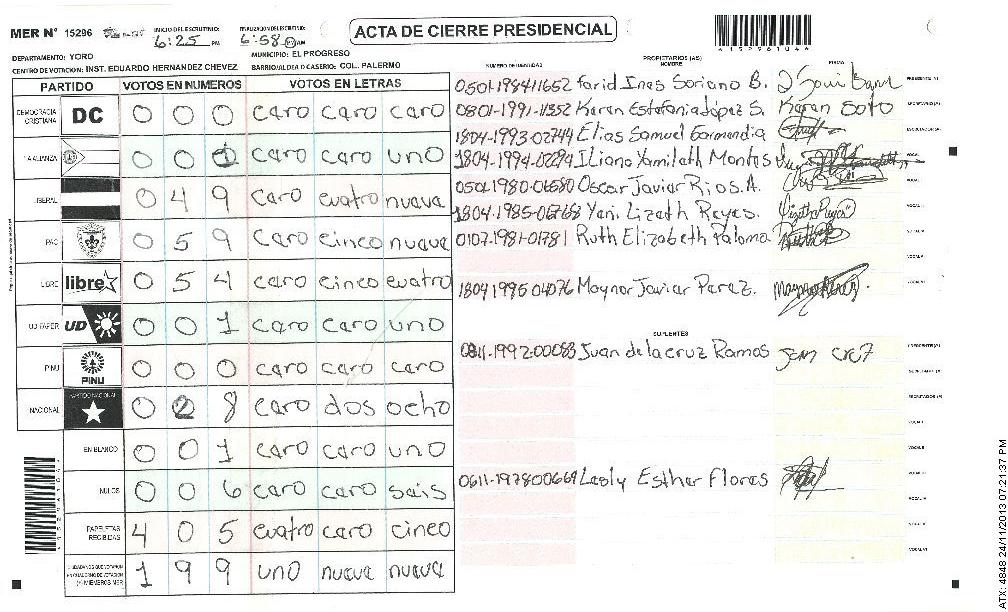 MER N° 15296
INICIO DEL ESCRUTINIO: 6:25 PM
FINALIZACION DEL ESCRUTINIO: 6:58 AM
ACTA DE CIERRE PRESIDENCIAL
DEPARTAMENTO: YORO
MUNICIPIO: EL PROGRESO
CENTRO DE VOTACION: INST. EDUARDO HERNANDEZ CHEVEZ
BARRIO/ALDEA O CASERIO: COL. PALERMO
PARTIDO VOTOS EN NUMEROS VOTOS EN LETRAS
DEMOCRACIA CRISTIANA DC 0 0 0 caro caro caro
LA ALIANZA 0 0 1 caro caro uno
LIBERAL 0 4 9 caro cuatro nueve
PAC 0 5 9 caro cinco nueve
LIBRE libre 0 5 4 caro cinco cuatro
UD FAPER UD 0 0 1 caro caro uno
PINU PINU 0 0 0 caro caro caro
NACIONAL PARTIDO NACIONAL 0 2 8 caro dos ocho
EN BLANCO 0 0 1 caro caro uno
NULOS 0 0 6 caro caro sais
PAPELETAS RECIBIDAS 4 0 5 cuatro caro cinco
CIUDADANOS QUE VOTARON EN CUADERNO DE VOTACION (+) MIEMBROS MER 1 9 9 uno nueve nueve
NUMERO DE IDENTIDAD PROPIETARIOS (AS) NOMBRE FIRMA
0501-1984-11652 Farid Ines Soriano B. PRESIDENTE (A)
0801-1991-11352 Karen Estefania López S. Karen Soto SECRETARIO (A)
1804-1993-02744 Elias Samuel Gormendia ESCRUTADOR (A)
1804-1994-02294 Iliana Yamilath Montes VOCAL
0501-1980-06580 Oscar Javier Rios. A. VOCAL
1804-1985-01768 Yeni Lizeth Reyes. Lizeth Reyes VOCAL
0107-1981-01781 Ruth Elizabeth Paloma VOCAL
VOCAL
1804 1995 04076 Maynor Javier Perez. VOCAL
SUPLENTES
0811-1992-00083 Juan de la cruz Ramos Juan cruz PRESIDENTE (A)
SECRETARIO (A)
ESCRUTADOR (A)
VOCAL
VOCAL
0611-1978-00669 Lesly Esther Flores VOCAL
VOCAL
VOCAL
VOCAL
ATX: 4848 24/11/2013 07:21:37 PM